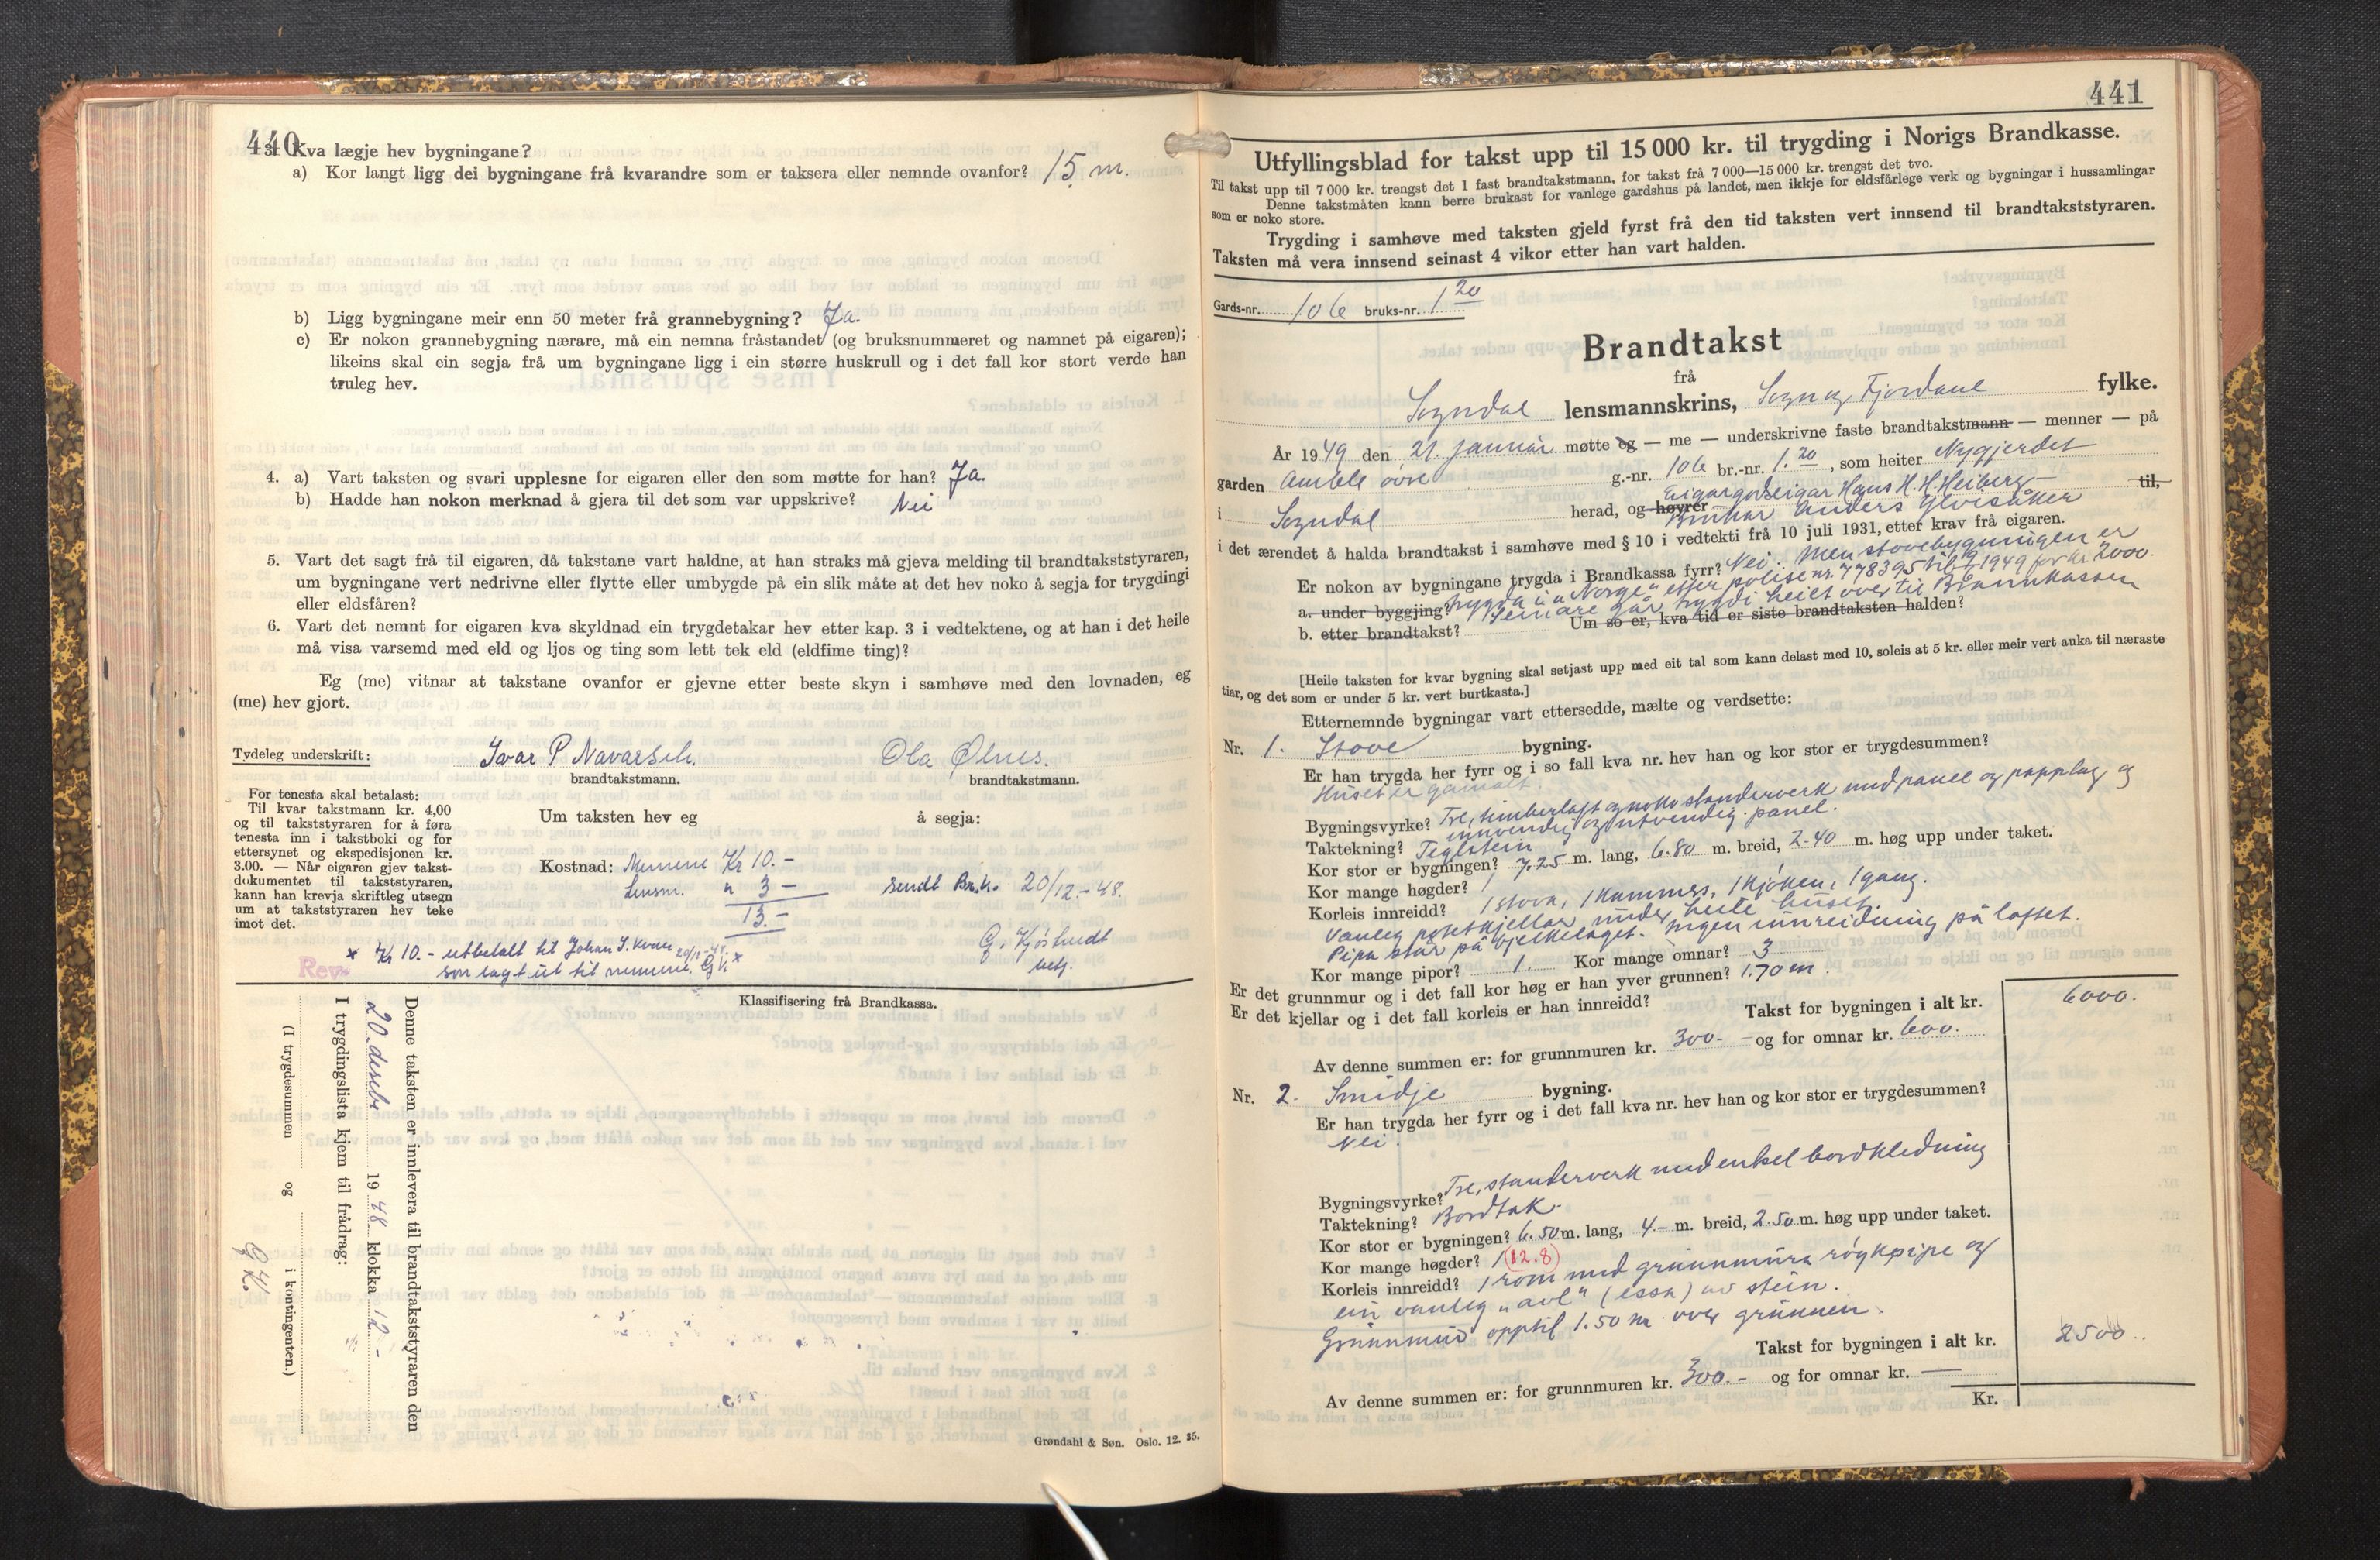 440
3. Kva lægje hev bygningane?
a) Kor langt ligg dei bygningane frå kvarandre som er taksera eller nemnde ovanfor? 15 m.
b) Ligg bygningane meir enn 50 meter frå grannebygning? Ja.
c) Er nokon grannebygning nærare, må ein nemna fråstandet (og bruksnummeret og namnet på eigaren);
likeins skal ein segja frå um bygningane ligg i ein større huskrull og i det fall kor stort verde han
truleg hev.
4. a) Vart taksten og svari upplesne for eigaren eller den som møtte for han? Ja.
b) Hadde han nokon merknad å gjera til det som var uppskrive? Nei
5. Vart det sagt frå til eigaren, då takstane vart haldne, at han straks må gjeva melding til brandtakststyraren,
um bygningane vert nedrivne eller flytte eller umbygde på ein slik måte at det hev noko å segja for trygdingi
eller eldsfåren?
6. Vart det nemnt for eigaren kva skyldnad ein trygdetakar hev etter kap. 3 i vedtektene, og at han i det heile
må visa varsemd med eld og ljos og ting som lett tek eld (eldfime ting)?
Eg (me) vitnar at takstane ovanfor er gjevne etter beste skyn i samhøve med den lovnaden, eg
(me) hev gjort.
Tydeleg underskrift: Ivar P Navarsete. Ola Ølnes.
brandtakstmann. brandtakstmann.
For tenesta skal betalast:
Til kvar takstmann kr. 4,00
og til takststyraren for å føra
tenesta inn i takstboki og for
ettersynet og ekspedisjonen kr.
3.00. — Når eigaren gjev takst-
dokumentet til takststyraren,
kann han krevja skriftleg utsegn
um at takststyraren hev teke
imot det.
Um taksten hev eg å segja:
Kostnad: Mennene Kr 10.-
Lensm. " 3 - sendt Br.k. 20/12-48.
13.-
G. Kjøstvedt
betj.
x Kr 10.- utbetalt til Johan S. Kvam 20/12-48
som lagt ut til mennene. G.K. x
Rev.
Klassifisering frå Brandkassa.
Denne taksten er innlevera til brandtakststyraren den
20. desebr 1948 klokka 12 -
I trygdingslista kjem til frådrag:
(I trygdesummen og i kontingenten.)
G.K.
Grøndahl & Søn. Oslo. 12. 35.
441
Utfyllingsblad for takst upp til 15 000 kr. til trygding i Norigs Brandkasse.
Til takst upp til 7 000 kr. trengst det 1 fast brandtakstmann, for takst frå 7 000—15 000 kr. trengst det tvo.
Denne takstmåten kann berre brukast for vanlege gardshus på landet, men ikkje for eldsfårlege verk og bygningar i hussamlingar
som er noko store.
Trygding i samhøve med taksten gjeld fyrst frå den tid taksten vert innsend til brandtakststyraren.
Taksten må vera innsend seinast 4 vikor etter han vart halden.
Gards-nr. 106 bruks-nr. 1 20
Brandtakst
frå
Sogndal lensmannskrins, Sogn og Fjordane fylke.
År 1949 den 21. januar møtte eg — me — underskrivne faste brandtakstmann — menner — på
garden Amble øvre g.-nr. 106 br.-nr. 1.20, som heiter Nygjerdet
i Sogndal herad, og høyrer Eigar godseigar Hans H. H. Heiberg til,
Brukar Anders Ylvisåker
i det ærendet å halda brandtakst i samhøve med § 10 i vedtekti frå 10 juli 1931, etter krav frå eigaren.
Er nokon av bygningane trygda i Brandkassa fyrr? Nei. Men stovebygningen er
a. under byggjing? trygda i „Norge" etter polise nr. 778395 til 1949 for kr. 2000.
går trygdi heilt over til Brannkassen
b. etter brandtakst? Um so er, kva tid er siste brandtaksten halden?
[Heile taksten for kvar bygning skal setjast upp med eit tal som kann delast med 10, soleis at 5 kr. eller meir vert auka til næraste
tiar, og det som er under 5 kr. vert burtkasta.]
Etternemnde bygningar vart ettersedde, mælte og verdsette:
Nr. 1. Stove bygning.
Er han trygda her fyrr og i so fall kva nr. hev han og kor stor er trygdesummen?
Huset er gamalt.
Bygningsvyrke? Tre, timberlaft og noko standerverk med panel og papplag og
innvendig og utvendig panel.
Taktekning? Teglstein
Kor stor er bygningen? 7.25 m. lang, 6.80 m. breid, 2.40 m. høg upp under taket.
Kor mange høgder? 1
Korleis innreidd? 1 stova, 1 kammers, 1 kjøken, 1 gang.
Vanleg potetkjellar under heile huset.
Pipa står på bjelkelaget. Ingen innreidning på loftet.
Kor mange pipor? 1. Kor mange omnar? 3
Er det grunnmur og i det fall kor høg er han yver grunnen? 1.70 m.
Er det kjellar og i det fall korleis er han innreidd?
Takst for bygningen i alt kr. 6000.
Av denne summen er: for grunnmuren kr. 300.- og for omnar kr. 600.
Nr. 2. Smidje bygning.
Er han trygda her fyrr og i det fall kva nr. hev han og kor stor er trygdesummen?
Nei.
Bygningsvyrke? Tre, standerverk med enkel bordkledning
Taktekning? Bordtak.
Kor stor er bygningen? 6.50 m. lang, 4.- m. breid, 2.50 m. høg upp under taket.
Kor mange høgder? 1 (12.8)
Korleis innreidd? 1 rom med grunnmura røykpipe og
ein vanleg „avl" (essa) av stein.
Grunnmur opptil 1.50 m. over grunnen.
Takst for bygningen i alt kr. 2500.
Av denne summen er: for grunnmuren kr. 300.- og for omnar kr. —
Kr.